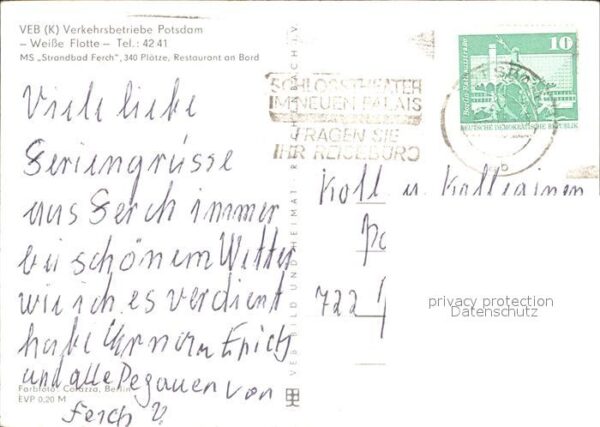 VEB (K) Verkehrsbetriebe Potsdam
– Weiße Flotte – Tel.: 42 41
MS „Strandbad Ferch", 340 Plätze, Restaurant an Bord
Viele liebe
Feriengrüsse
aus Ferch immer
bei schönem Wetter
wie ich es verdient
habe Erich
und alle Pegauer von
Ferch
Farbfoto: Corazza, Berlin
EVP 0,20 M
VEB BILD UND HEIMAT REICHENBACH I. V.
SCHLOSSTHEATER
IM NEUEN PALAIS
FRAGEN SIE
IHR REISEBÜRO
10
DEUTSCHE DEMOKRATISCHE REPUBLIK
Koll u. Kolleginnen
722
privacy protection
Datenschutz